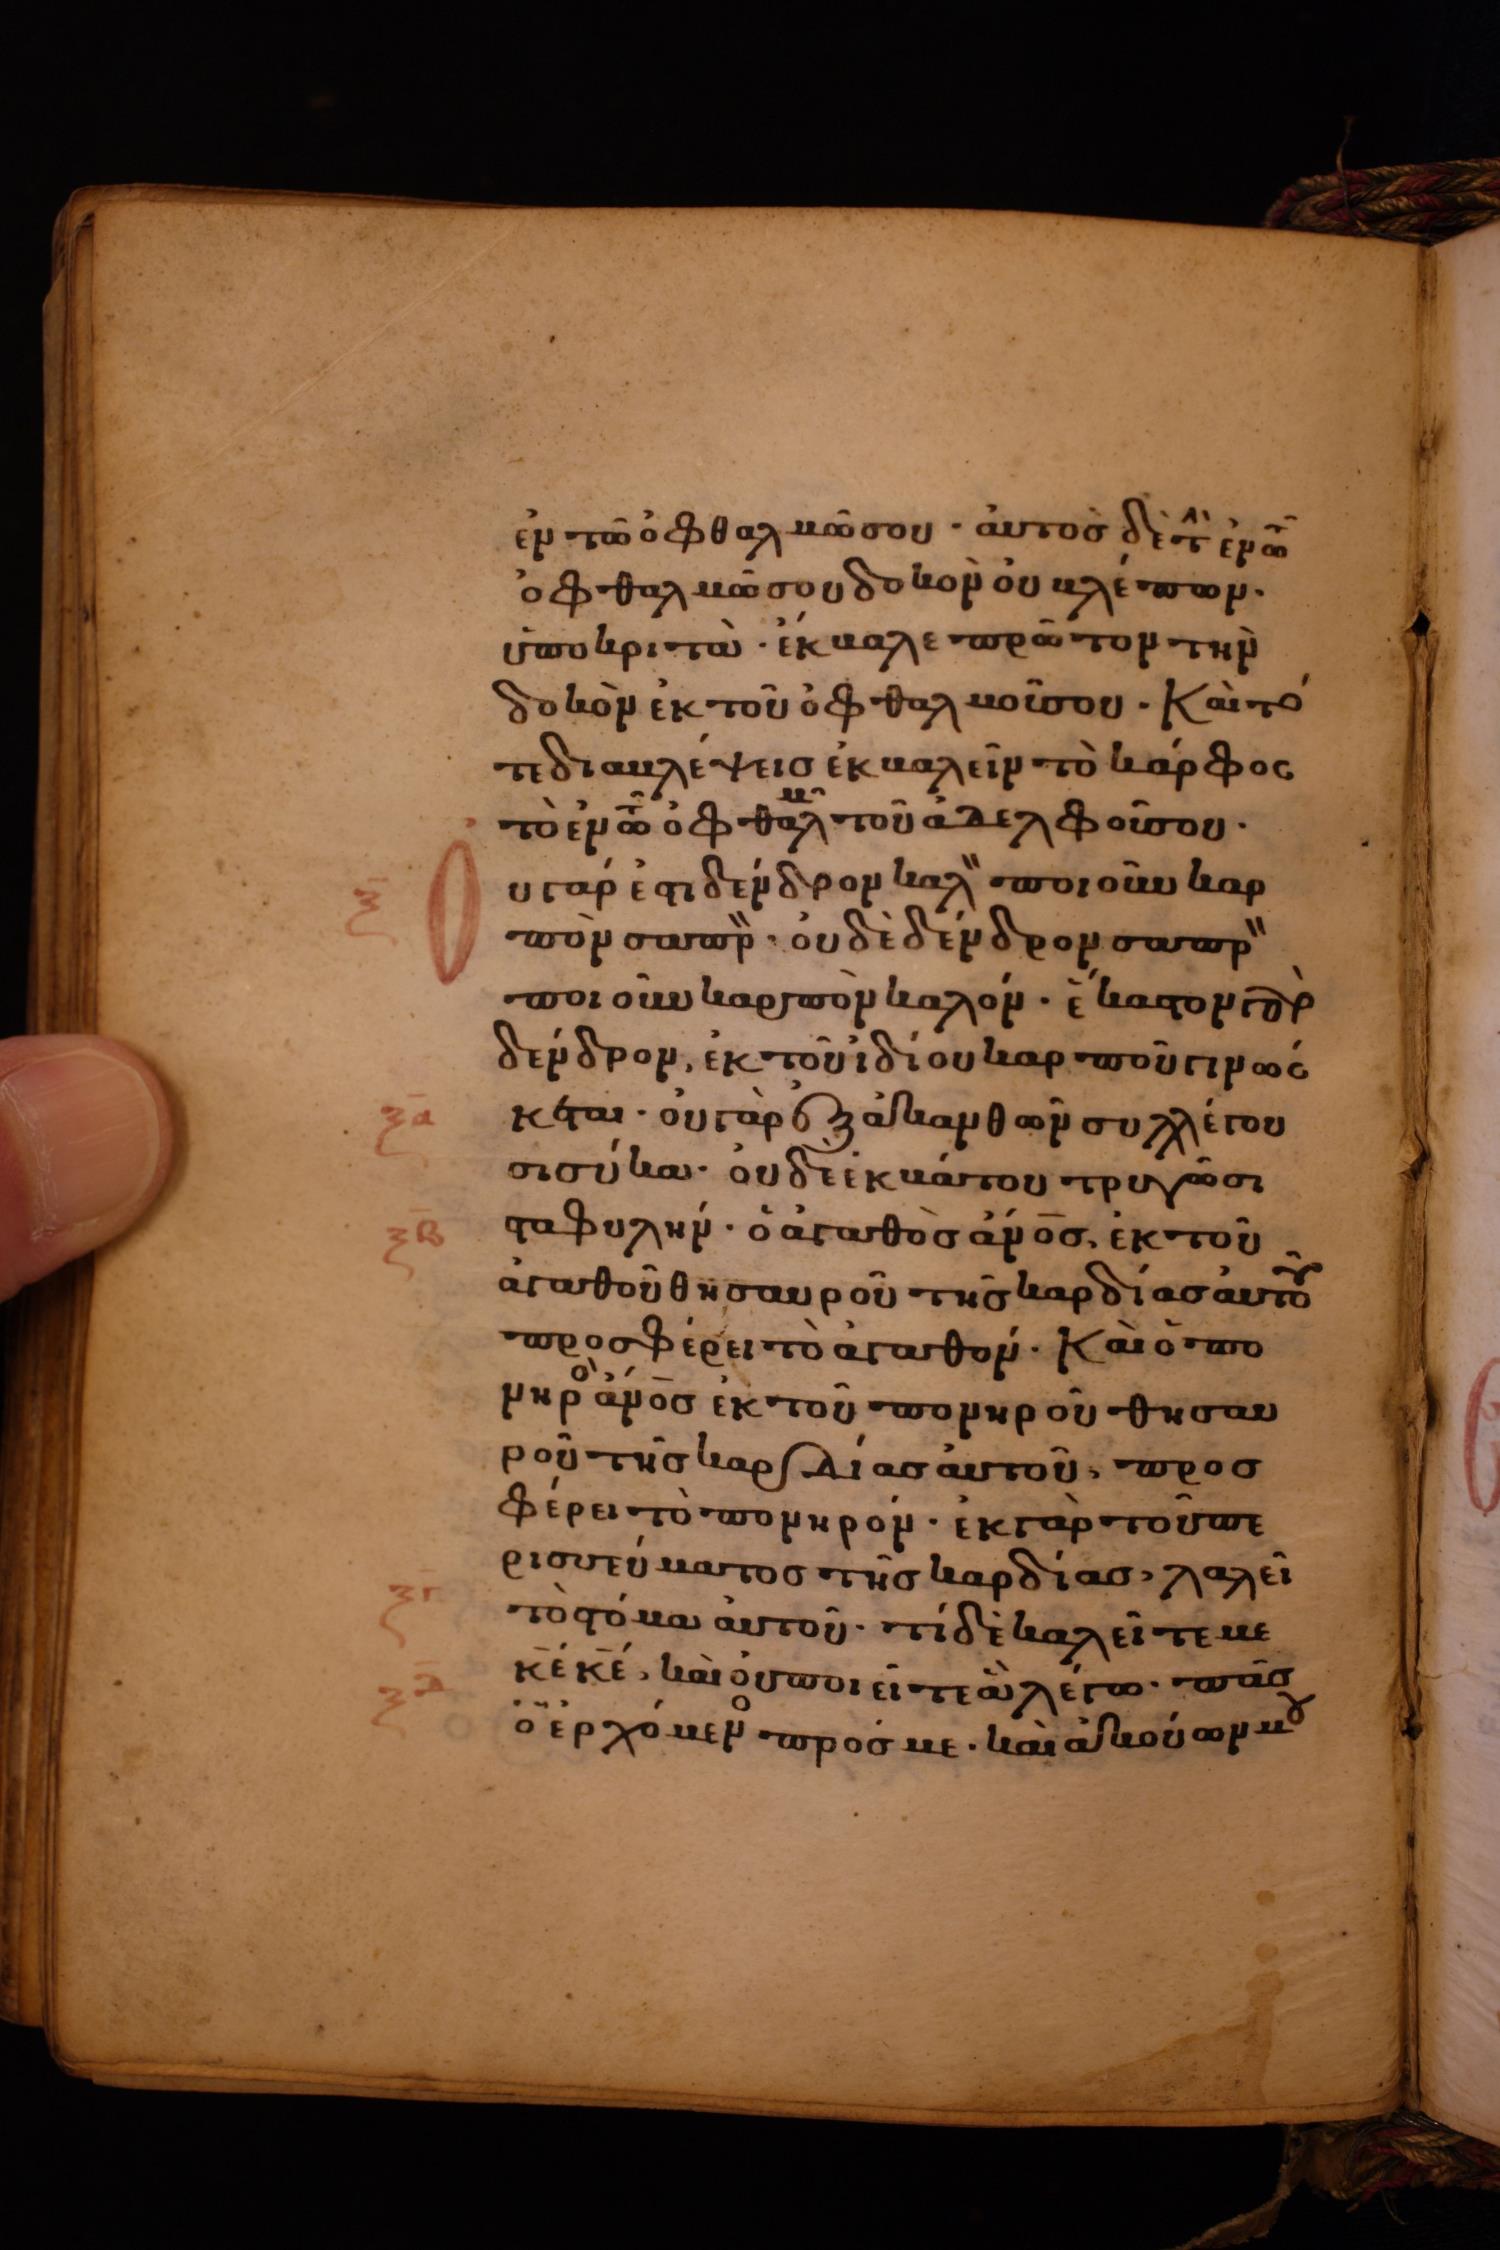 ἐν τῶ ὀφθαλμῶ σου · ἀυτὸσ δὲ τὴ ἐν τῶ
ὀφθαλμῶ σου δοκὸν ὀυ βλέπων ·
ὑποκριτὰ · ἔκβαλε πρῶτον τὴν
δοκὸν ἐκ τοῦ ὀφθαλμοῦ σου · Καὶ τό
τε διαβλέψεισ ἐκβαλεῖν τὸ κάρφος
τὸ ἐν τῶ ὀφθαλμ τοῦ ἀδελφοῦ σου ·
ξ Ο υ γάρ ἐστι δένδρον καλ ποιοῦν καρ
πὸν σαπρ · ὀυδὲ δένδρον σαπρ
ποιοῦν καρπὸν καλόν · ἕκαστον γὰρ
δένδρον, ἐκ τοῦ ἰδίου καρποῦ γινώς
ξα κεται · ὀυ γὰρ ἐξ ἀκανθῶν συλλέγου
σι σύκα · ὀυδὲ ἐκ βάτου τρυγῶσι
ξβ σταφυλήν · ὁ ἀγαθὸσ ἄνοσ, ἐκ τοῦ
ἀγαθοῦ θησαυροῦ τῆσ καρδίασ ἀυτοῦ
προσφέρει τὸ ἀγαθόν · Καὶ ὁ πο
νηρὸ ἄνοσ ἐκ τοῦ πονηροῦ θησαυ
ροῦ τῆσ καρδίασ ἀυτοῦ, προσ
φέρει τὸ πονηρόν · ἐκ γὰρ τοῦ πε
ρισσεύματοσ τῆσ καρδίασ, λαλεῖ
ξγ τὸ στόμα ἀυτοῦ · τί δὲ καλεῖτε με
κέ κέ, καὶ ὀυ ποιεῖτε ἃ λέγω · πᾶσ
ξδ ὁ ἐρχόμενο πρόσ με · καὶ ἀκούων μου